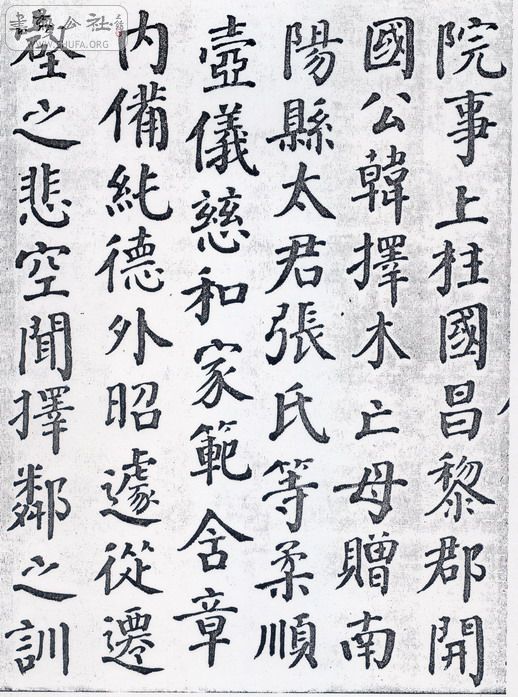 院事上柱國昌黎郡開
國公韓擇木亡母贈南
陽縣太君張氏等柔順
壼儀慈和家範含章
内備純德外昭遽從遷
壑之悲空聞擇鄰之訓
書法公社
WWW.SHUFA.ORG